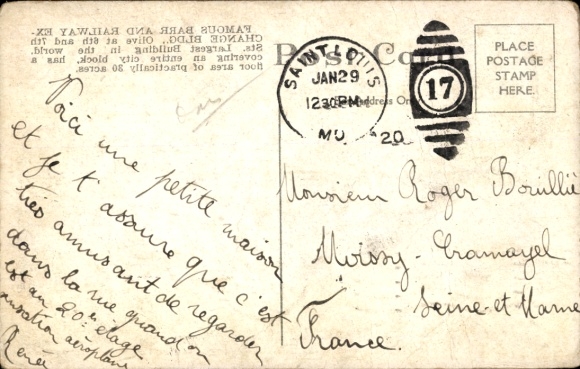 FAMOUS BARR AND RAILWAY EX-
CHANGE BLDG., Olive at 6th and 7th
Sts. Largest Building in the world,
covering an entire city block, has a
floor area of practically 30 acres.
Post Card
Address On
SAINT LOUIS
JAN 29
12 30 PM
MO
20
17
PLACE
POSTAGE
STAMP
HERE.
Voici une petite maison
et je t assure que c'est
très amusant de regarder
dans la rue quand on
est au 20e étage
sensation aéroplane
Renée
Monsieur Roger
Moissy-Cramayel
Seine-et Marne
France.